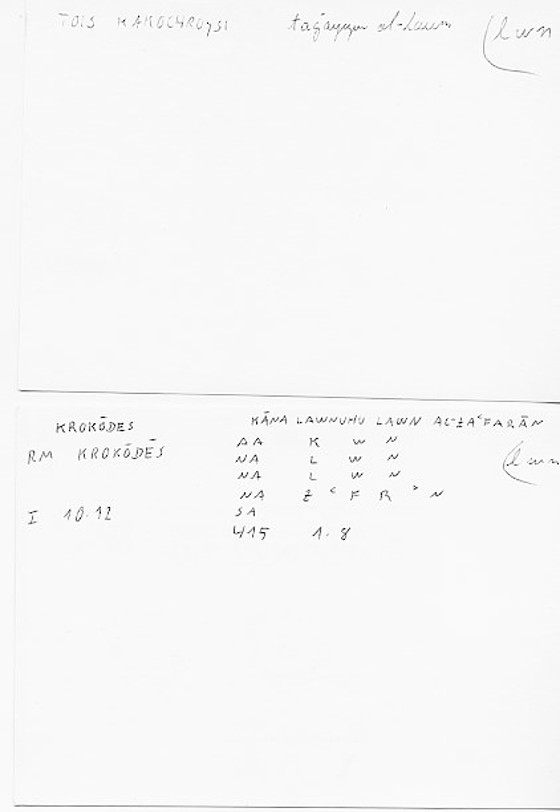 TOIS KAKOCHROYSI taġayyur al-lawn (lwn
KROKŌDES KĀNA LAWNUHU LAWN AL-ZAʿFARĀN
RM KROKŌDĒS AA K W N (lwn
NA L W N
NA L W N
NA Z ʿ F R ʾ N
I 10.12 SA
415 1.8